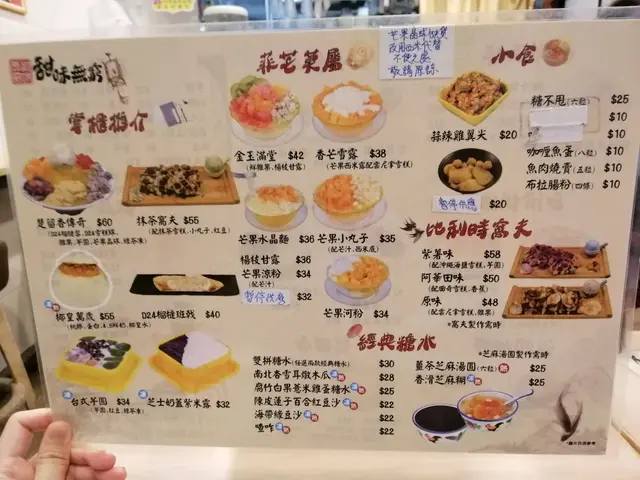 甜味無窮
掌櫃推介
楚留香傳奇 $60
抹茶窩夫 $55
(配抹茶雪糕,小丸子,紅豆)
椰皇萬歲 $55
D24榴槤班戟 $40
台式芋圓 $34
(芋圓,紅豆,綠茶凍)
芝士奶蓋紫米露 $32
菲芒莫屬
芒果西米代替
不便之處
敬請原諒
金玉滿堂 $42
(鮮雜果,楊枝甘露)
香芒雪露 $38
(芒果西米露配雲尼拿雪糕)
芒果水晶麵 $36
芒果小丸子 $35
(配芒汁,西米底)
楊枝甘露 $36
芒果涼粉 $34
(配芒汁)
暫停供應 $32
芒果河粉 $34
小食
蒜辣雞翼尖 $20
暫停供應 $20
糖不甩(六粒) $25
$10
咖喱魚蛋(八粒) $10
魚肉燒賣(五粒) $10
布拉腸粉(四條) $10
比利時窩夫
紫薯味 $58
(配沖繩海鹽雪糕,芋圓)
阿華田味 $50
(配曲奇雪糕,香蕉)
原味 $48
(配雲尼拿雪糕,雜果)
*窩夫製作需時
經典糖水
雙拼糖水(任選兩款經典糖水) $30
南北杏雪耳燉木瓜 $28
腐竹白果薏米雞蛋糖水 $25
陳皮蓮子百合紅豆沙 $22
海帶綠豆沙 $22
喳咋 $22
*芝麻湯圓製作需時
薑茶芝麻湯圓(六粒) $25
香滑芝麻糊 $25
*圖片只供參考